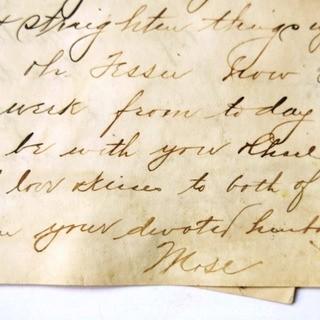 straighten things
oh Jessie how
week from today
be with you
love kisses to both of
your devoted
Mose